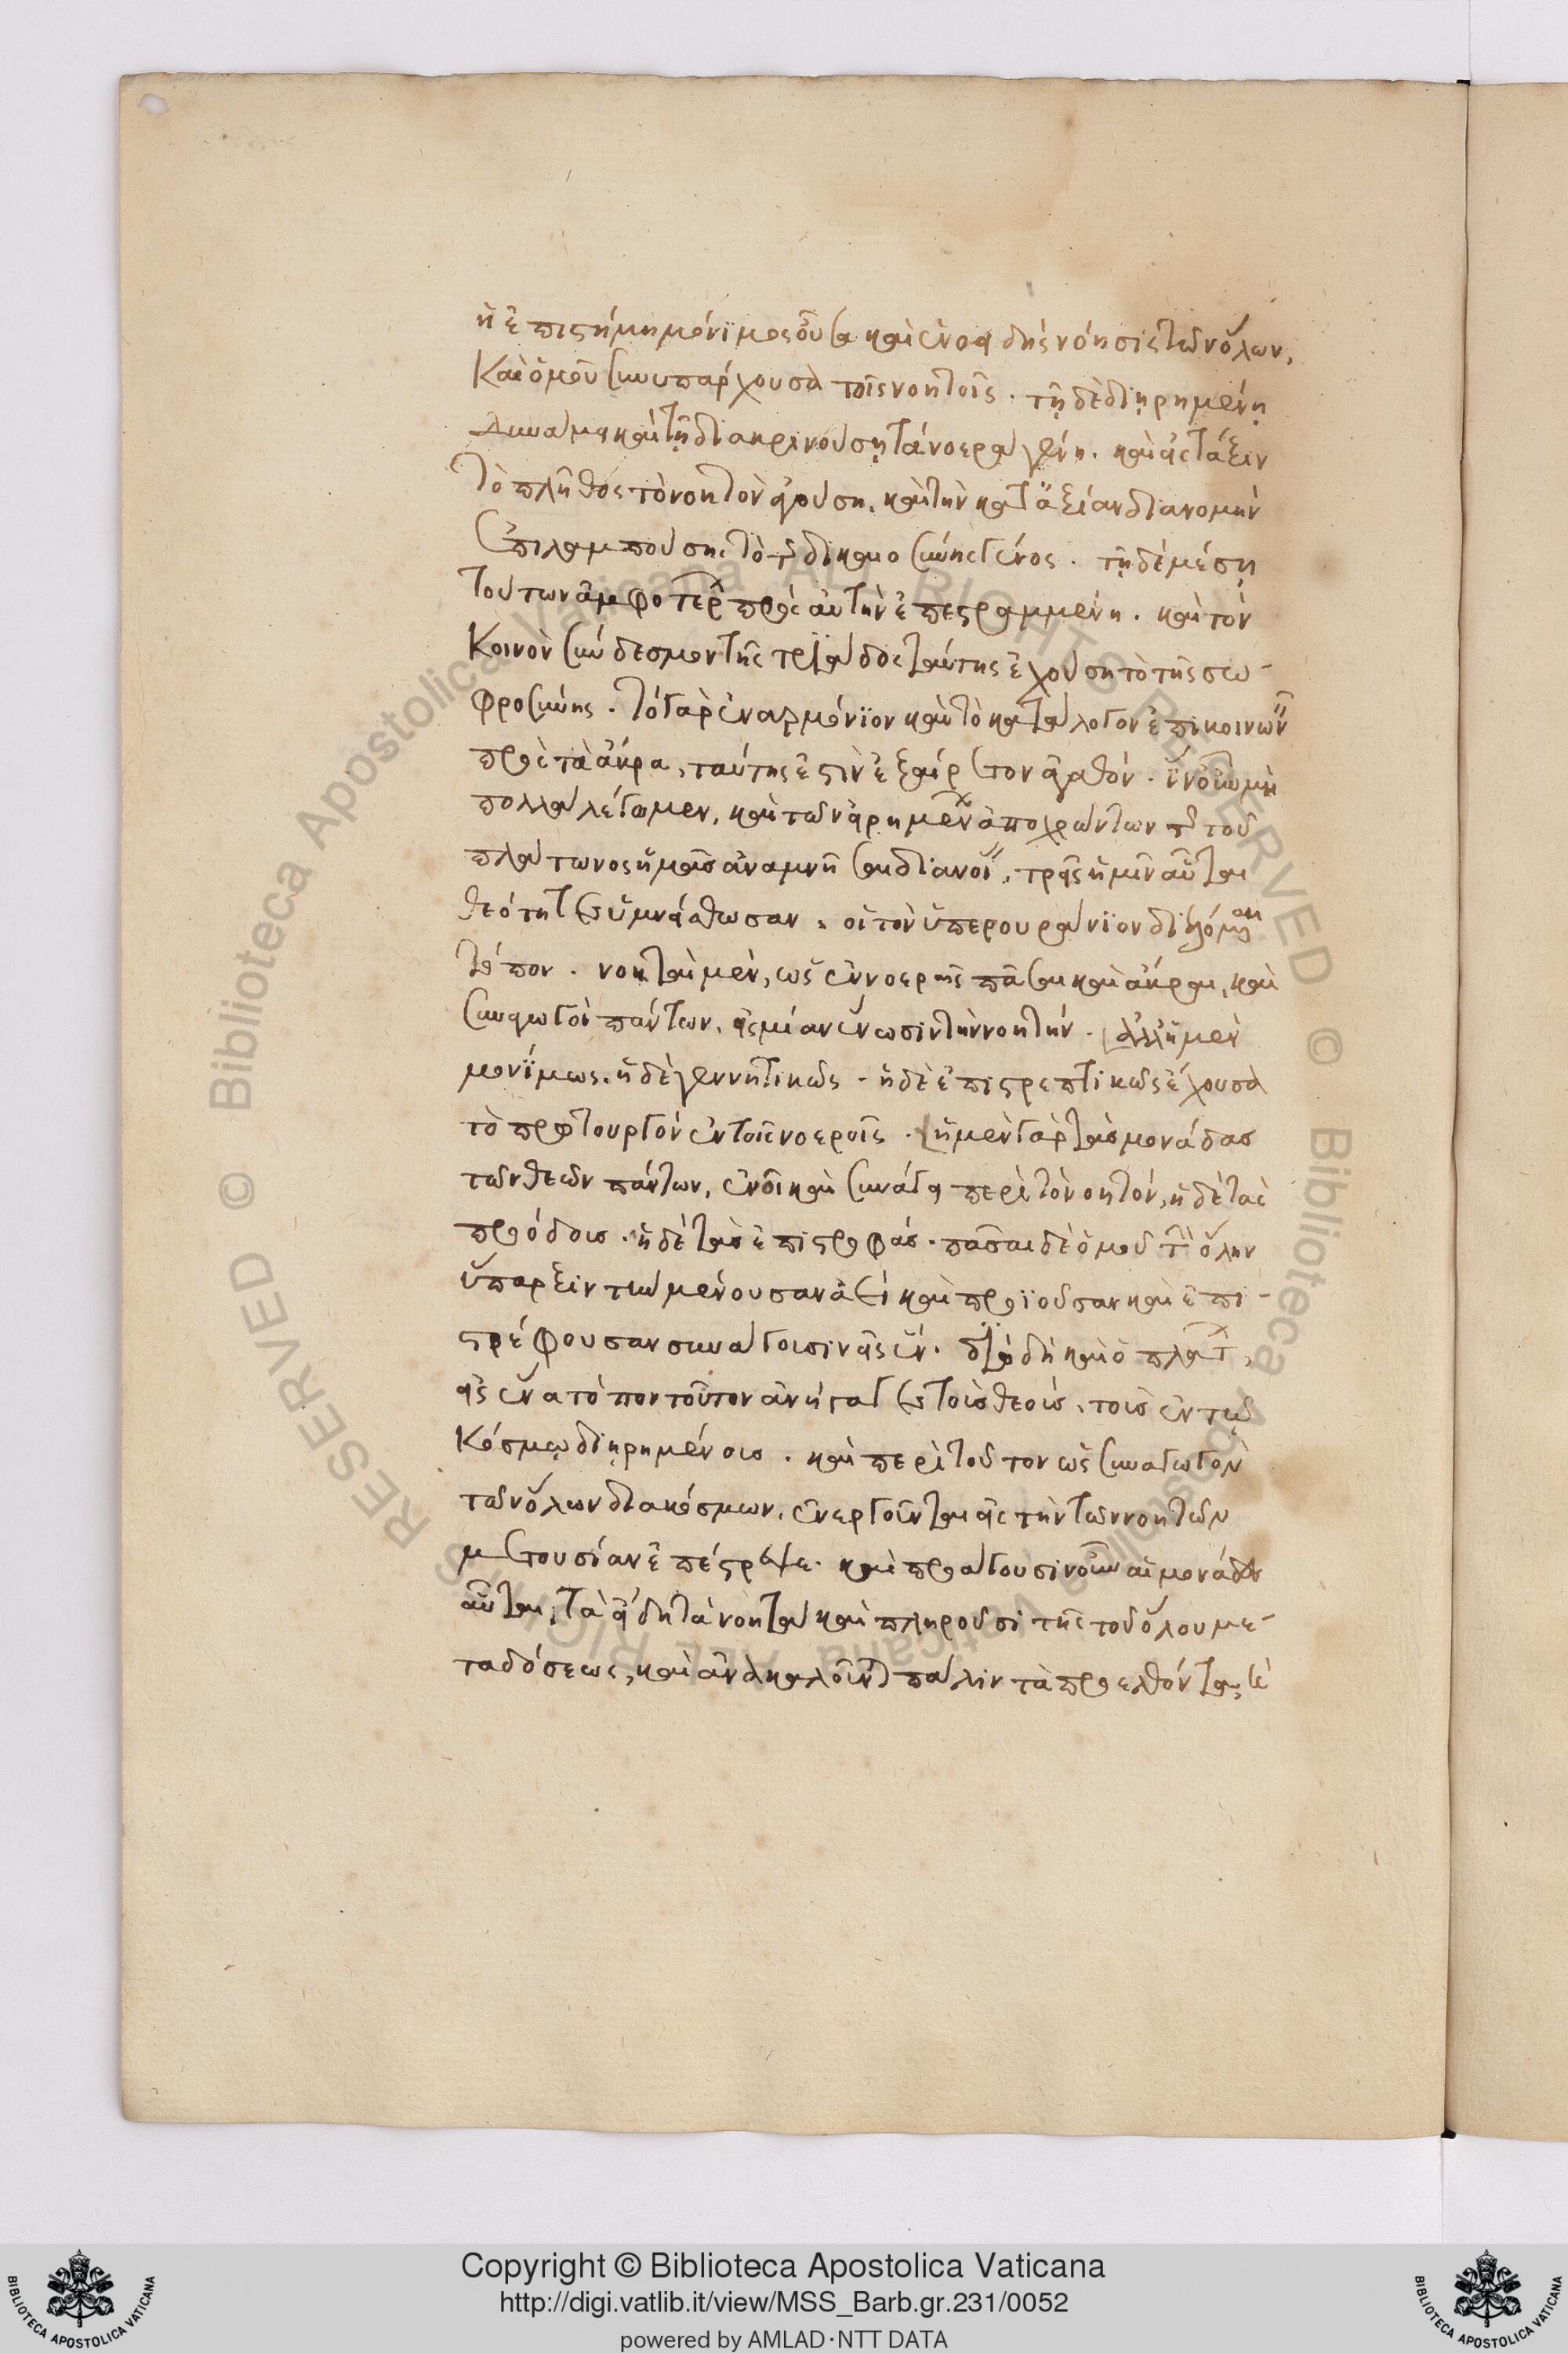 ἡ ἐπιστήμη μόνιμος οὖσα καὶ ἑνοειδὴς νόησις τῶν ὅλων,
Καὶ ὁμοῦ συνυπάρχουσα τοῖς νοητοῖς. τῇ δὲ διῃρημένῃ
δυνάμει καὶ τῇ διακρινούσῃ τὰ νοερὰ γένη. καὶ εἰς τάξιν
τὸ πλῆθος τὸ νοητὸν ἀγούσῃ, καὶ τὴν κατ' ἀξίαν διανομὴν
ἐπιλαμπούσης τὸ τῆς δικαιοσύνης γένος. τῇ δὲ μέσῃ
τούτων ἀμφοτέρων πρὸς αὐτὴν ἐπεστραμμένῃ. καὶ τὸν
Κοινὸν σύνδεσμον τῆς τριάδος ταύτης ἐχούσῃ τὸ τῆς σω-
φροσύνης. τὸ γὰρ ἐναρμόνιον καὶ τὸ κατὰ λόγον ἐπικοινωνοῦν
πρὸς τὰ ἄκρα, ταύτης ἐστὶν ἐξαίρετον ἀγαθόν. ἵν' οὖν μὴ
πολλὰ λέγωμεν, καὶ τῶν εἰρημένων ἀποχρώντων τῆς τοῦ
πλάτωνος ἡμᾶς ἀναμνῆσαι διανοίας, τρεῖς ἡμῖν αὗται
θεότητες ὑμνείσθωσαν. οἱ τὸν ὑπερουράνιον διζόμεναι
τόπον. νοηταὶ μὲν, ὡς ἐν νοεραῖς πᾶσαι καὶ ἄκραι, καὶ
συναγωγοὶ πάντων, εἰς μίαν ἕνωσιν τὴν νοητήν. ἀλλ' ἡ μὲν
μονίμως. ἡ δὲ γεννητικῶς. ἡ δὲ ἐπιστρεπτικῶς ἔχουσα
τὸ πρωτουργὸν ἐν τοῖς νοεροῖς. ἡ μὲν γὰρ τὰς μονάδας
τῶν θεῶν πάντων, ἑνοῖ καὶ συνάγει περὶ τὸ νοητόν, ἡ δὲ τὰς
προόδους. ἡ δὲ τὰς ἐπιστροφάς. πᾶσαι δὲ ὁμοῦ τὴν ὅλην
ὕπαρξιν τὴν μένουσαν ἀεὶ καὶ προϊοῦσαν καὶ ἐπι-
στρέφουσαν συνάγουσιν εἰς ἕν. διὸ δὴ καὶ ὁ πλάτων,
εἰς ἕνα τόπον τοῦτον ἀνήγαγε τοὺς θεοὺς, τοὺς ἐν τῷ
Κόσμῳ διῃρημένους. καὶ περὶ τοῦτον ὡς συναγωγὸν
τῶν ὅλων διακόσμων, ἐνεργοῦντας εἰς τὴν τῶν νοητῶν
μετουσίαν ἐπέστρεψε. καὶ προάγουσιν οὖν αἱ μονάδες
αὗται, τὰ εἴδη τὰ νοητὰ καὶ πληροῦσι τῆς τοῦ ὅλου με-
ταδόσεως, καὶ ἀνακαλοῦνται πάλιν τὰ προελθόντα, καὶ
Copyright © Biblioteca Apostolica Vaticana
http://digi.vatlib.it/view/MSS_Barb.gr.231/0052
powered by AMLAD·NTT DATA